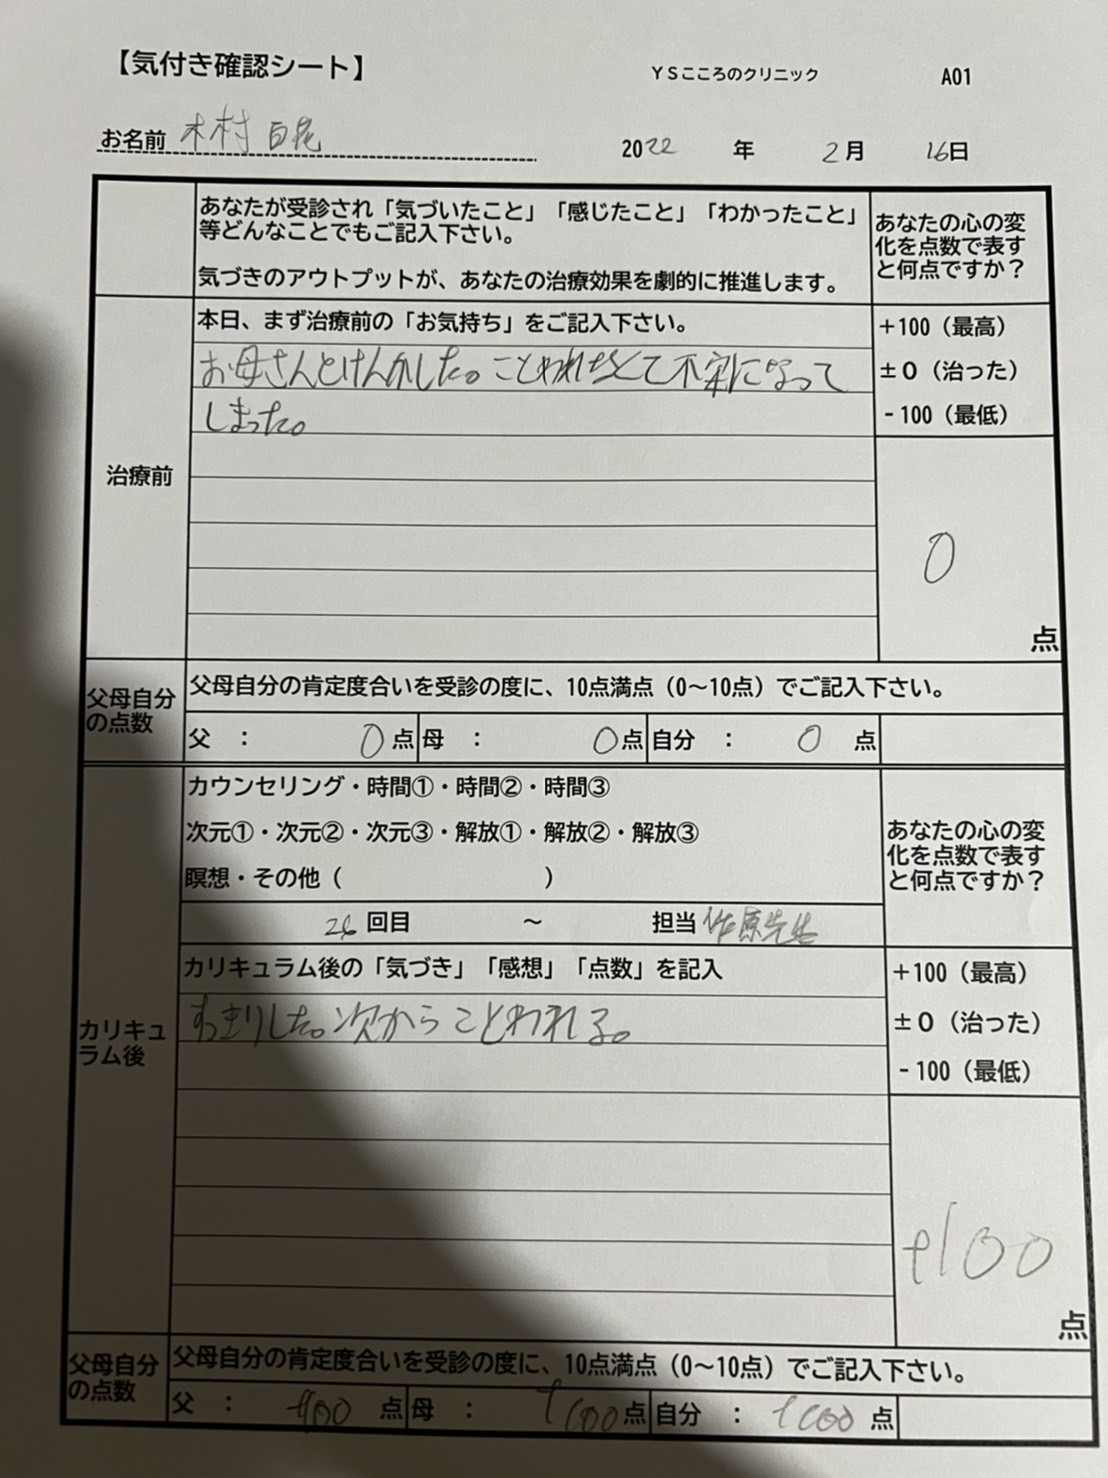 【気付き確認シート】 ＹＳこころのクリニック A01
お名前 木村 百花 2022年 2月 16日
あなたが受診され「気づいたこと」「感じたこと」「わかったこと」
等どんなことでもご記入下さい。
気づきのアウトプットが、あなたの治療効果を劇的に推進します。
あなたの心の変
化を点数で表す
と何点ですか？
治療前
本日、まず治療前の「お気持ち」をご記入下さい。
お母さんとけんかした。ことわれなくて不安になって
しまった。
+100（最高）
±０（治った）
-100（最低）
0
点
父母自分
の点数
父母自分の肯定度合いを受診の度に、10点満点（0〜10点）でご記入下さい。
父 ： 0 点 母 ： 0 点 自分 ： 0 点
カウンセリング・時間①・時間②・時間③
次元①・次元②・次元③・解放①・解放②・解放③
瞑想・その他（ ）
あなたの心の変
化を点数で表す
と何点ですか？
26 回目 〜 担当 原先生
カリキュ
ラム後
カリキュラム後の「気づき」「感想」「点数」を記入
すっきりした。次からことわれる。
+100（最高）
±０（治った）
-100（最低）
+100
点
父母自分
の点数
父母自分の肯定度合いを受診の度に、10点満点（0〜10点）でご記入下さい。
父 ： +100 点 母 ： +100 点 自分 ： +100 点